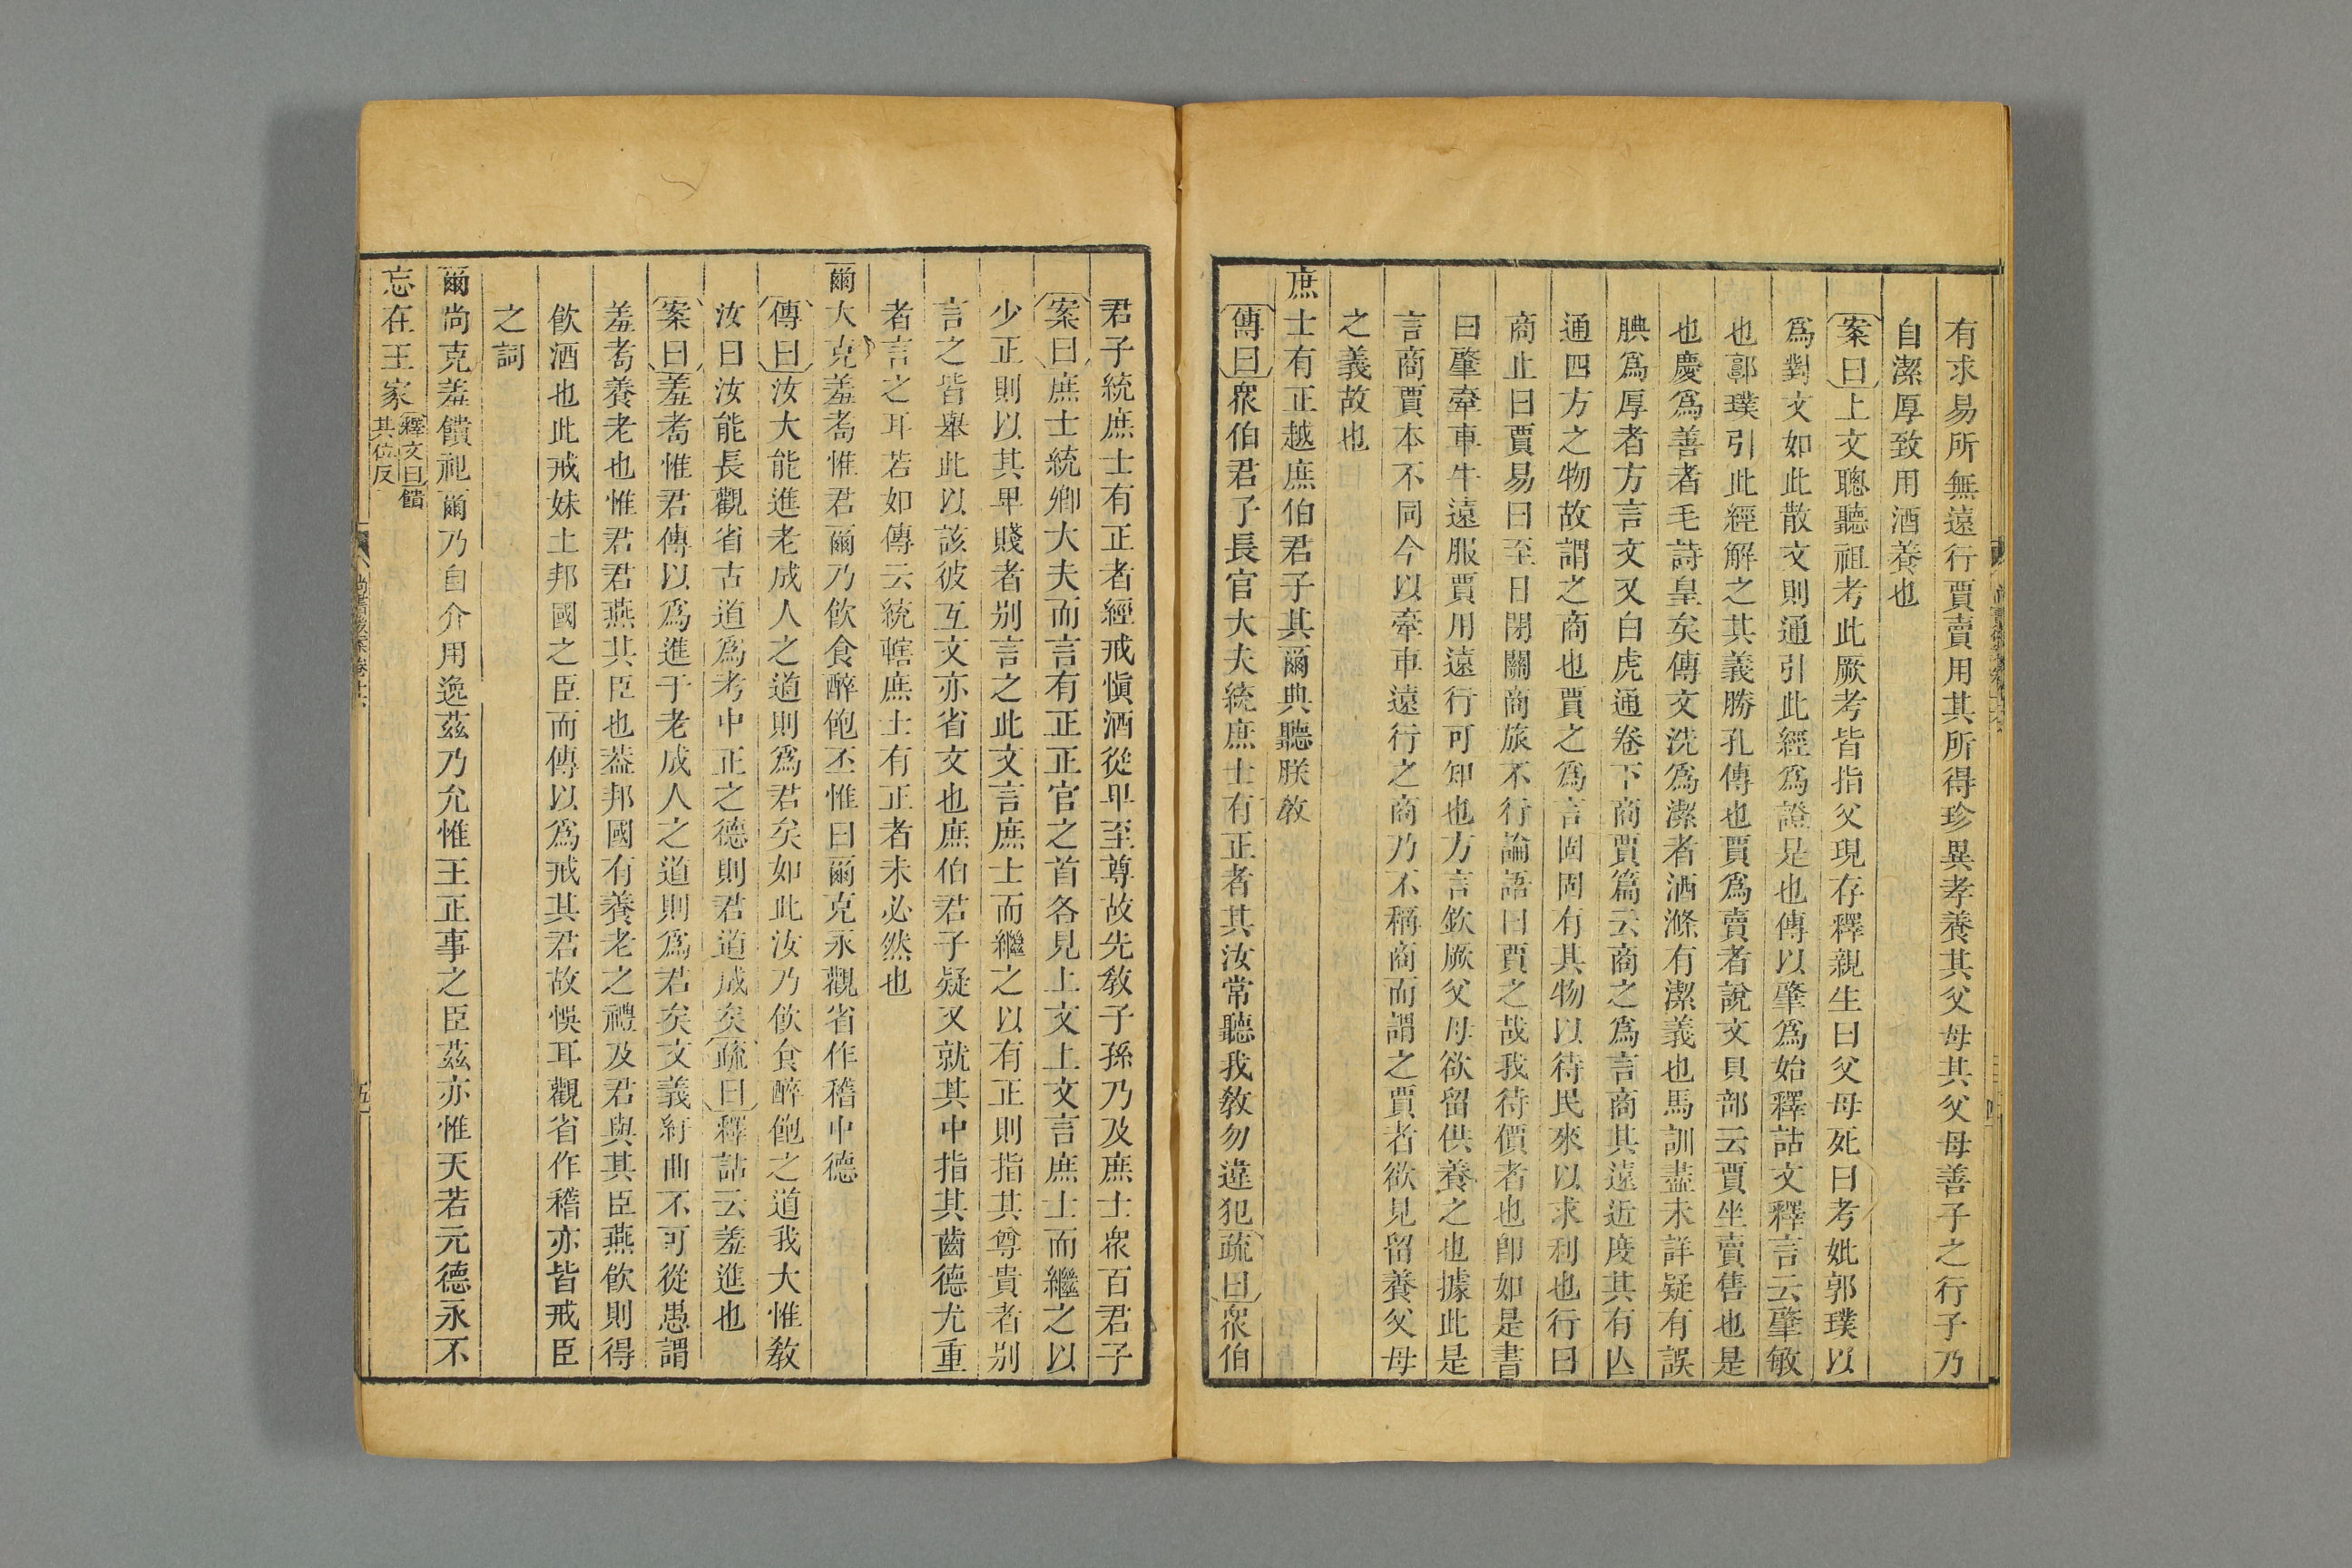 有求易所無遠行賈賣用其所得珍異孝養其父母其父母善子之行子乃
自潔厚致用酒養也
案曰上文聰聽祖考此厥考皆指父現存釋親生曰父母死曰考妣郭璞以
爲對文如此散文則通引此經爲證是也傳以肇爲始釋詁文釋言云肇敏
也郭璞引此經解之其義勝孔傳也賈爲賣者說文貝部云賈坐賣售也是
也慶爲善者毛詩皇矣傳文洗爲潔者洒滌有潔義也馬訓盡未詳疑有誤
腆爲厚者方言文又白虎通卷下商賈篇云商之爲言商其遠近度其有亾
通四方之物故謂之商也賈之爲言固固有其物以待民來以求利也行曰
商止曰賈易曰至日閉關商旅不行論語曰賈之哉我待價者也卽如是書
曰肇牽車牛遠服賈用遠行可知也方言欽厥父母欲留供養之也據此是
言商賈本不同今以牽車遠行之商乃不稱商而謂之賈者欲見留養父母
之義故也
庶士有正越庶伯君子其爾典聽朕敎
傳曰衆伯君子長官大夫統庶士有正者其汝常聽我敎勿違犯疏曰衆伯
君子統庶士有正者經戒愼酒從卑至尊故先敎子孫乃及庶士衆百君子
案曰庶士統卿大夫而言有正正官之首各見上文上文言庶士而繼之以
少正則以其卑賤者别言之此文言庶士而繼之以有正則指其尊貴者别
言之皆舉此以該彼互文亦省文也庶伯君子疑又就其中指其齒德尤重
者言之耳若如傳云統轄庶士有正者未必然也
爾大克羞耇惟君爾乃飮食醉飽丕惟曰爾克永觀省作稽中德
傳曰汝大能進老成人之道則爲君矣如此汝乃飮食醉飽之道我大惟敎
汝曰汝能長觀省古道爲考中正之德則君道成矣疏曰釋詁云羞進也
案曰羞耇惟君傳以爲進于老成人之道則爲君矣文義紆曲不可從愚謂
羞耇養老也惟君君燕其臣也葢邦國有養老之禮及君與其臣燕飮則得
飮酒也此戒妹土邦國之臣而傳以爲戒其君故悞耳觀省作稽亦皆戒臣
之詞
爾尚克羞饋祀爾乃自介用逸茲乃允惟王正事之臣茲亦惟天若元德永不
忘在王家釋文曰饋其位反
尚書後案卷十六
五